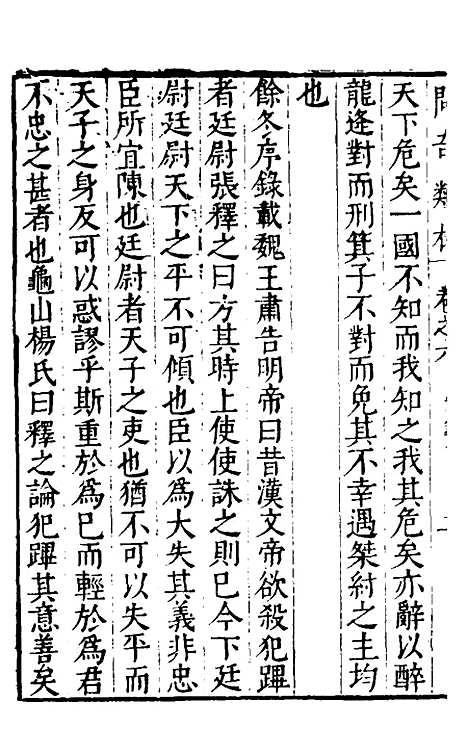 天下危矣一國不知而我知之我其危矣亦辭以醉
龍逢對而刑箕子不對而免其不幸遇桀紂之主均
也
餘冬序錄載魏王肅告明帝曰昔漢文帝欲殺犯蹕
者廷尉張釋之曰方其時上使使誅之則已今下廷
尉廷尉天下之平不可傾也臣以爲大失其義非忠
臣所宜陳也廷尉者天子之吏也猶不可以失平而
天子之身友可以惑謬乎斯重於爲巳而輕於爲君
不忠之甚者也龜山楊氏曰釋之論犯蹕其意善矣